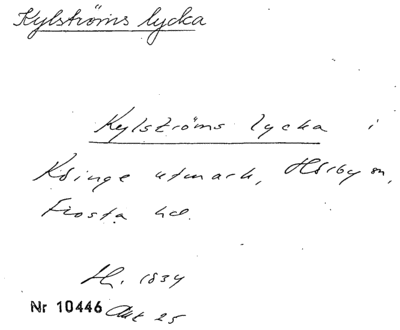 Kylströms lycka
Kylströms lycka i
Köinge utmark, Hörby sn,
Frosta hd.
H. 1834
Nr 10446 Akt 25